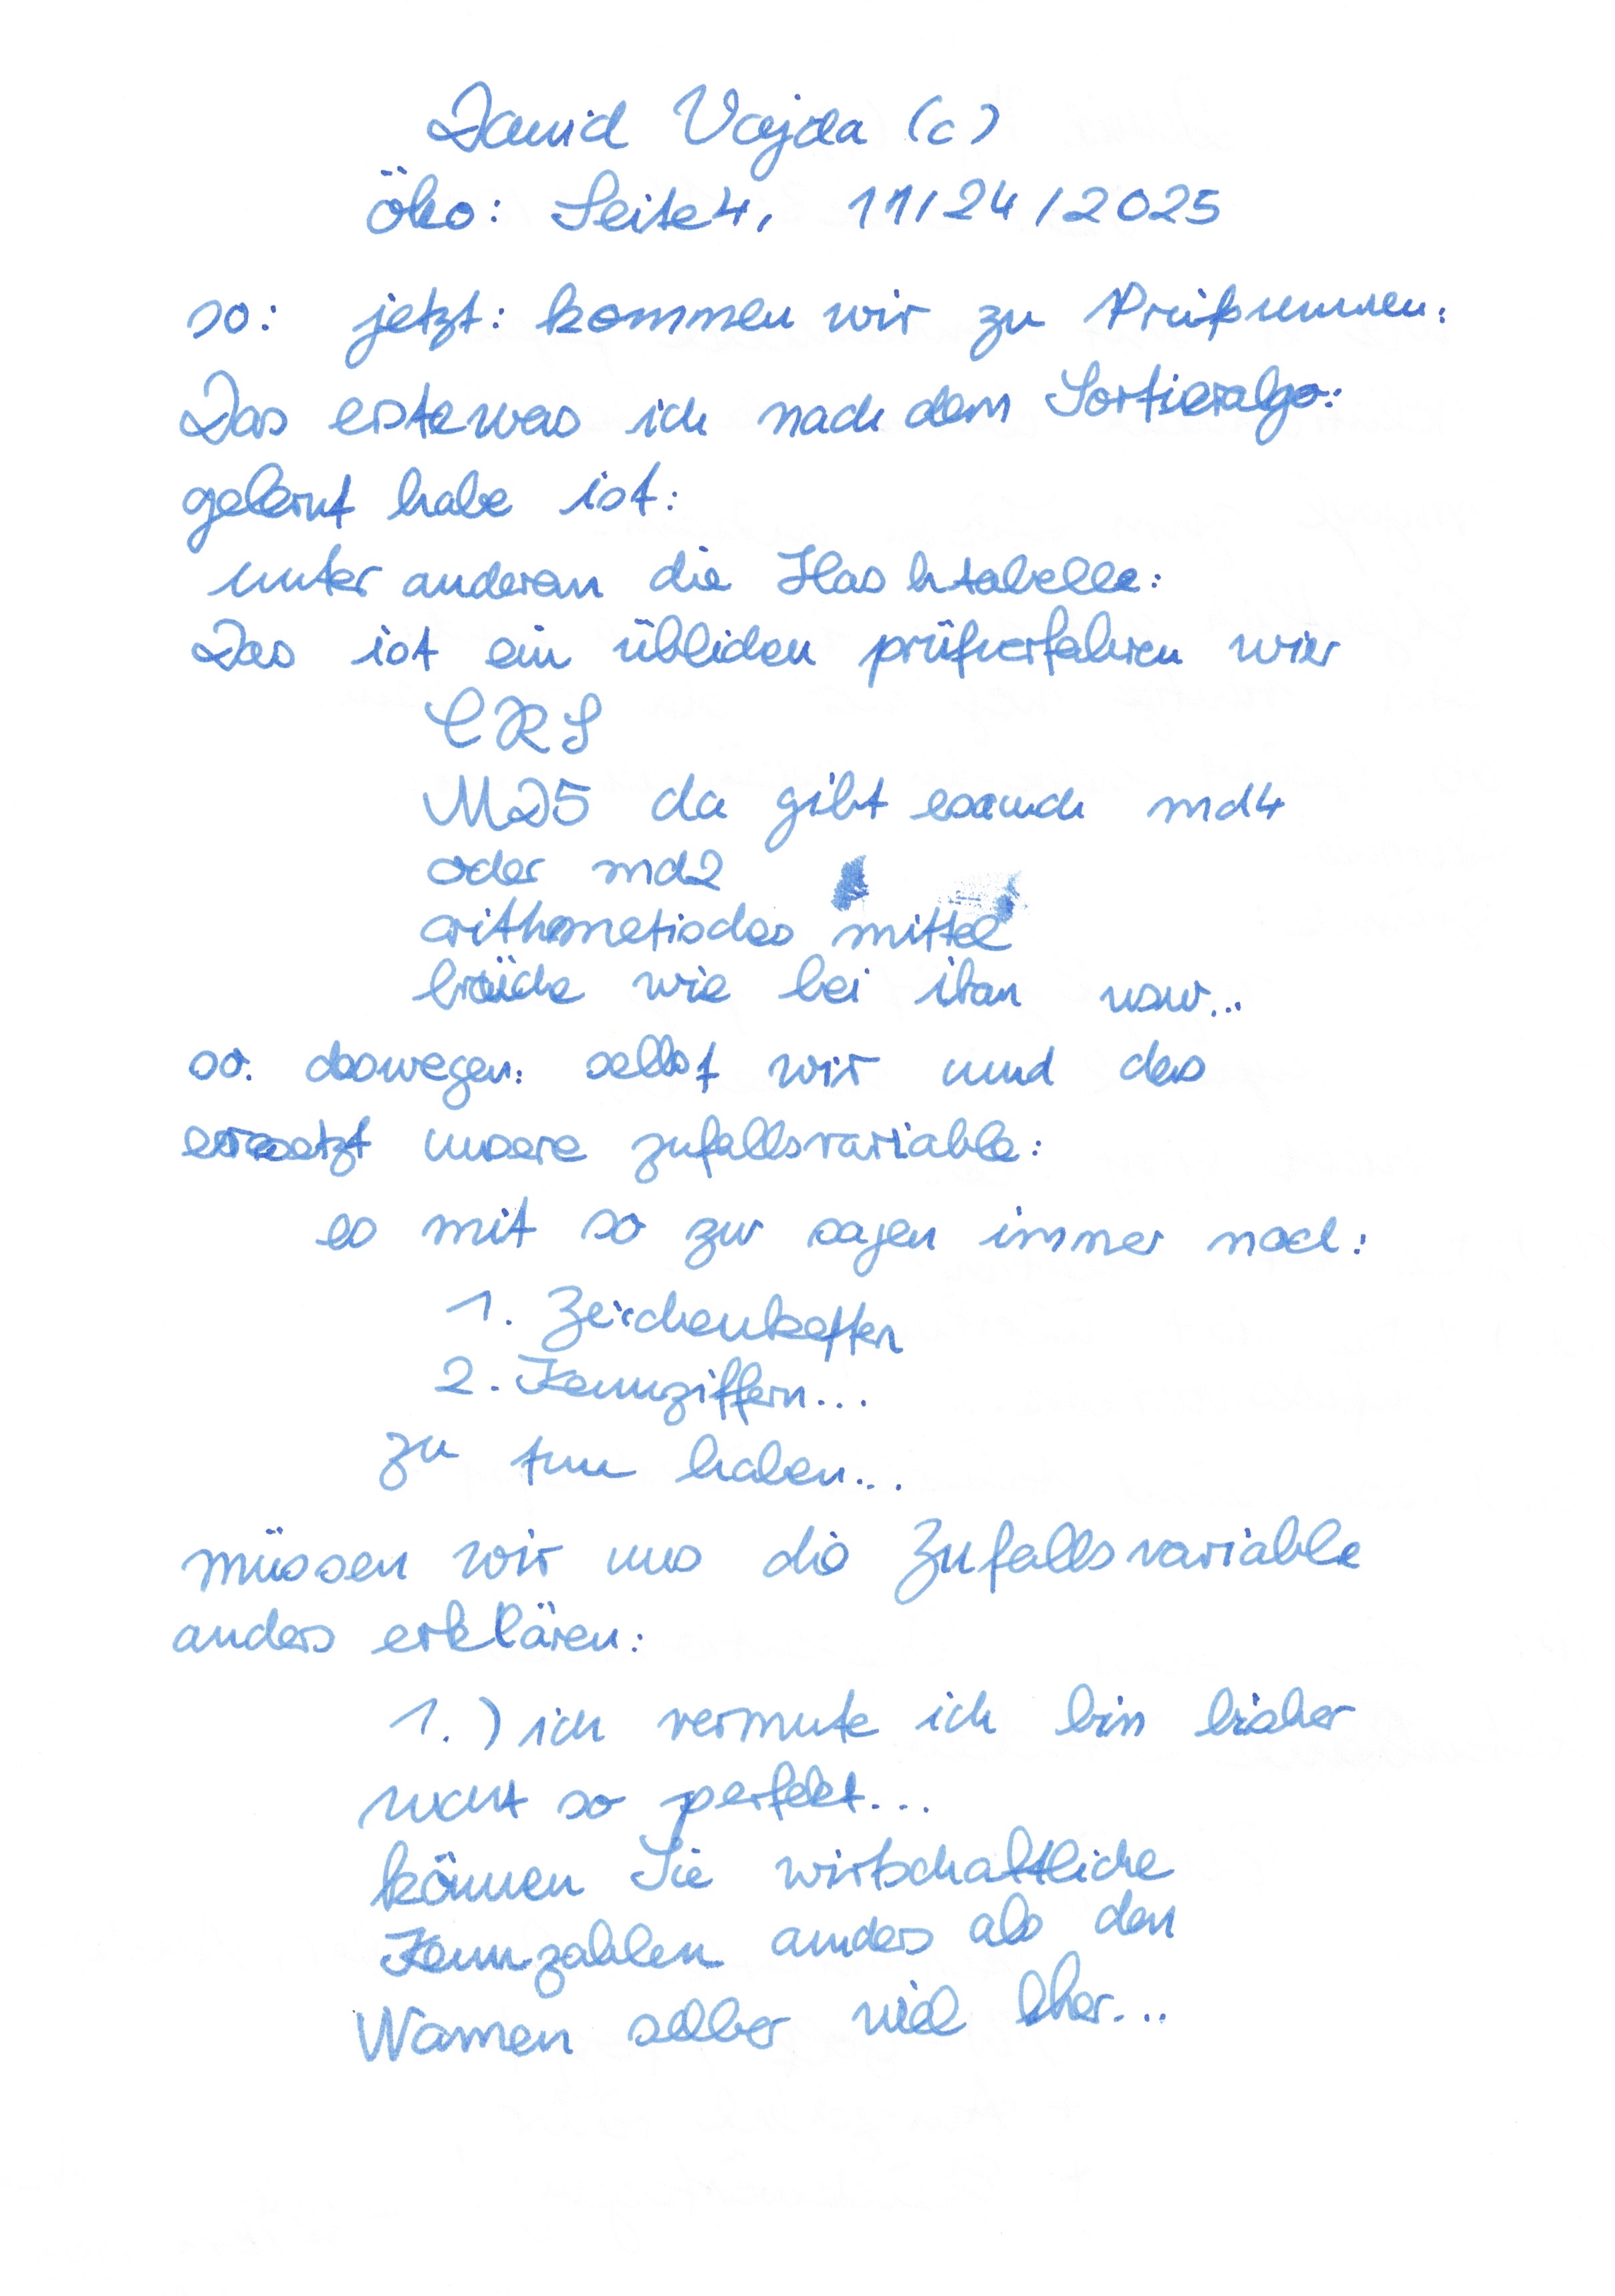 David Vajda (c)
Öko: Seite 4, 11/24/2025
so: jetzt: kommen wir zu Prüfsummen:
Das erste was ich nach dem Sortieralgo:
gelernt habe ist:
unter anderem die Hashtabelle:
Das ist ein übliches prüfverfahren wir
CRS
MD5 da gibt es auch md4
oder md2
arithmetisches mittel
brüche wie bei iban usw...
so. deswegen: selbst wir und das
ersetzt unsere zufallsvariable:
es mit so zur sagen immer noch:
1. Zeichenketten
2. Kennziffern...
zu tun haben...
müssen wir uns die Zufallsvariable
anders erklären:
1.) ich vermute ich bin bisher
nicht so perfekt...
können Sie wirtschaftliche
Kennzahlen anders als den
Namen selber viel eher...